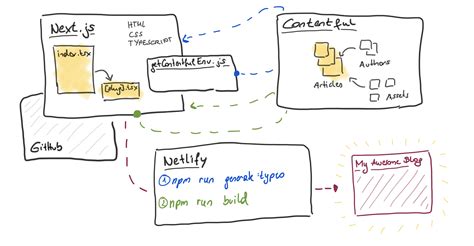 Next.js
HTML
CSS
TYPESCRIPT
index.tsx
[slug].tsx
getContentfulEnv.js
GitHub
Contentful
Authors
Articles
Assets
Netlify
1 npm run generate:types
2 npm run build
My Awesome Blog